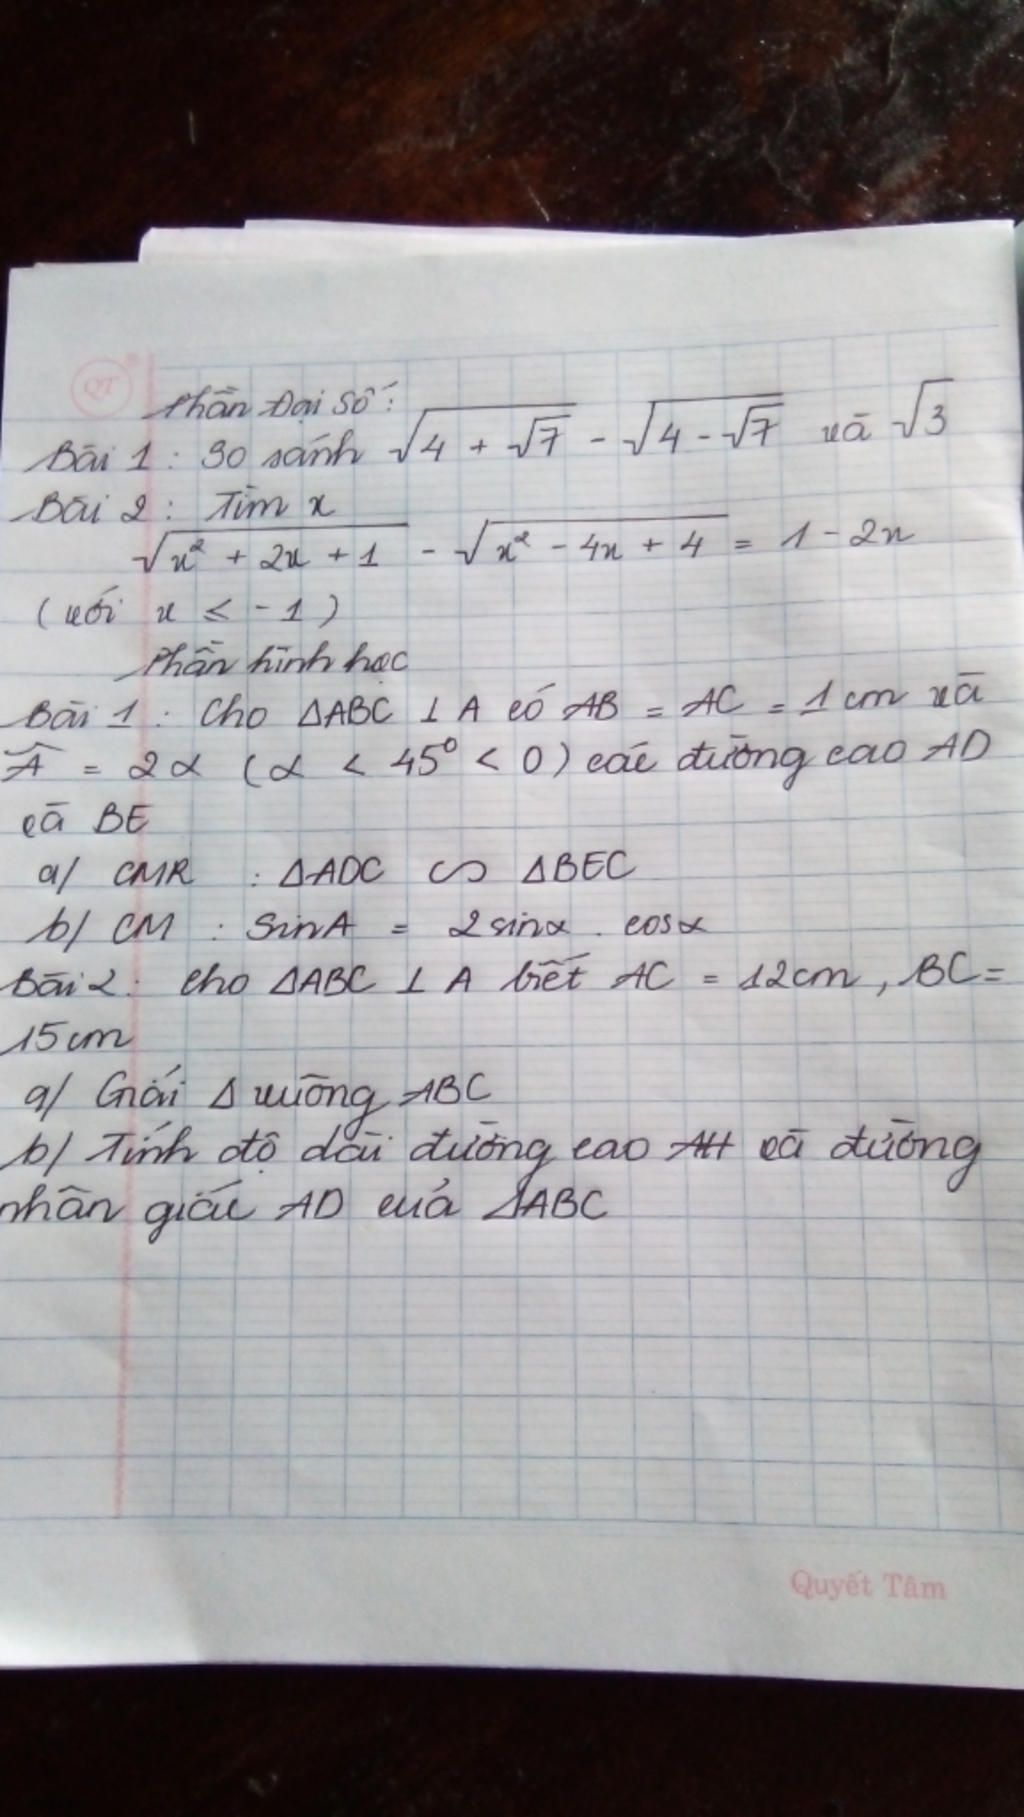 QT
Phần Đại Số:
Bài 1: So sánh √(4 + √7) - √(4 - √7) và √3
Bài 2: Tìm x
√(x² + 2x + 1) - √(x² - 4x + 4) = 1 - 2x
(với x ≤ -1)
Phần hình học
Bài 1: Cho ΔABC ⊥ A có AB = AC = 1cm và
Â = 2α (α < 45° < 0) các đường cao AD
và BE
a/ CMR : ΔADC ∽ ΔBEC
b/ CM : SinA = 2sinα . cosα
Bài 2: Cho ΔABC ⊥ A biết AC = 12cm, BC =
15cm
a/ Giải Δ vuông ABC
b/ Tính độ dài đường cao AH và đường
phân giác AD của ΔABC
Quyết Tâm